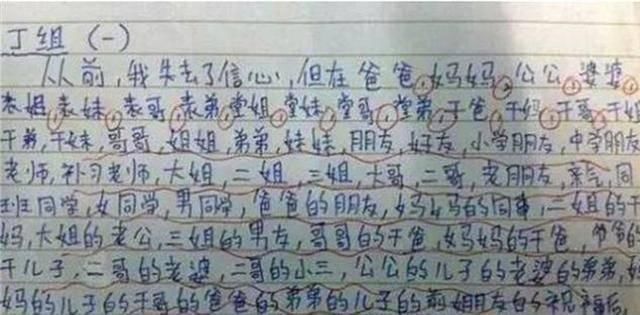 丁组 (一)
从前,我失去了信心,但在爸爸,妈妈,公公,婆婆,
表姐,表妹,表哥,表弟,堂姐,堂妹,堂哥,堂弟,干爸,干妈,干哥,干姐
干弟,干妹,哥哥,姐姐,弟弟,妹妹,朋朋友,好友,小学朋友,中学朋友
老师,补习老师,大姐,二姐,三姐,大哥,二哥,老朋友,亲戚,同
班同学,女同学,男同学,爸爸的朋友,妈妈的同事,二姐的干
妈,大姐的老公,三姐的男友,哥哥的干爸,妈妈的干爸,爷爷的
干儿子,二哥的老婆,二哥的小三,公公的儿子的老婆的弟弟,
妈的儿子的干哥的爸爸的弟弟的儿子的前朋友的祝福后,